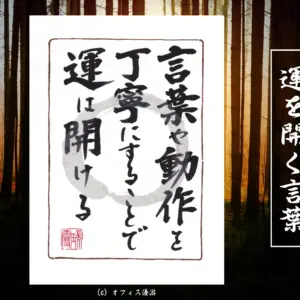 言葉や動作を
丁寧にすることで
運は開ける
運を開く言葉
(c) オフィス湧沼